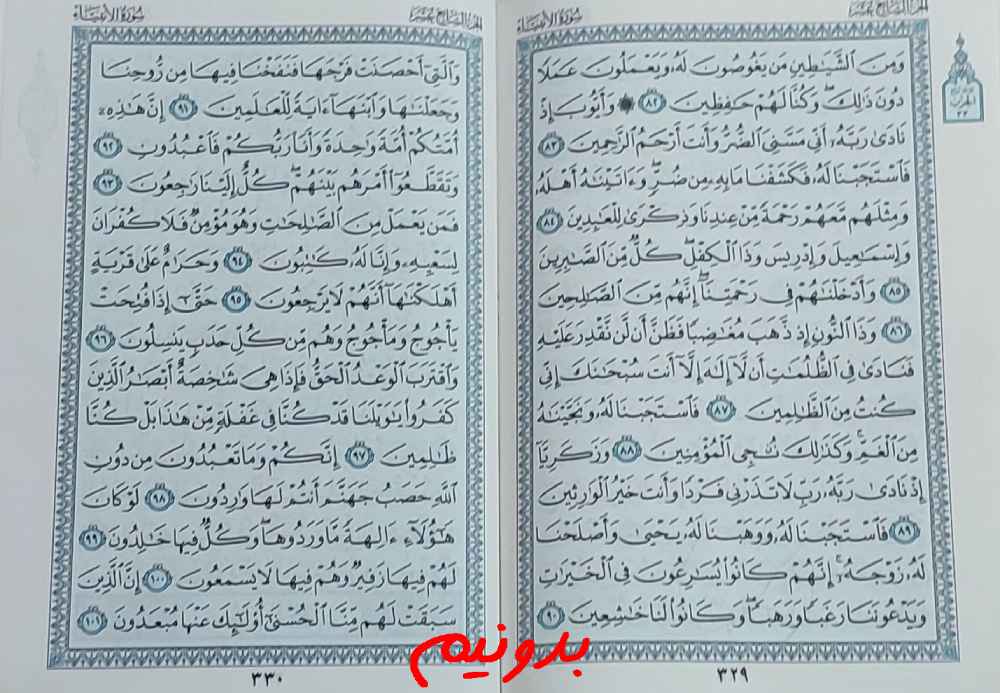 الجزء السابع عشر
سورة الأنبياء
وَمِنَ ٱلشَّيَٰطِينِ مَن يَغُوصُونَ لَهُۥ وَيَعْمَلُونَ عَمَلًا
دُونَ ذَٰلِكَۖ وَكُنَّا لَهُمْ حَٰفِظِينَ ٨٢ ۞ وَأَيُّوبَ إِذْ
نَادَىٰ رَبَّهُۥٓ أَنِّي مَسَّنِيَ ٱلضُّرُّ وَأَنتَ أَرْحَمُ ٱلرَّٰحِمِينَ ٨٣
فَٱسْتَجَبْنَا لَهُۥ فَكَشَفْنَا مَا بِهِۦ مِن ضُرٍّۖ وَءَاتَيْنَٰهُ أَهْلَهُۥ
وَمِثْلَهُم مَّعَهُمْ رَحْمَةً مِّنْ عِندِنَا وَذِكْرَىٰ لِلْعَٰبِدِينَ ٨٤
وَإِسْمَٰعِيلَ وَإِدْرِيسَ وَذَا ٱلْكِفْلِۖ كُلٌّ مِّنَ ٱلصَّٰبِرِينَ
٨٥ وَأَدْخَلْنَٰهُمْ فِي رَحْمَتِنَآۖ إِنَّهُم مِّنَ ٱلصَّٰلِحِينَ
٨٦ وَذَا ٱلنُّونِ إِذ ذَّهَبَ مُغَٰضِبًا فَظَنَّ أَن لَّن نَّقْدِرَ عَلَيْهِ
فَنَادَىٰ فِي ٱلظُّلُمَٰتِ أَن لَّآ إِلَٰهَ إِلَّآ أَنتَ سُبْحَٰنَكَ إِنِّي
كُنتُ مِنَ ٱلظَّٰلِمِينَ ٨٧ فَٱسْتَجَبْنَا لَهُۥ وَنَجَّيْنَٰهُ
مِنَ ٱلْغَمِّۚ وَكَذَٰلِكَ نُۨجِي ٱلْمُؤْمِنِينَ ٨٨ وَزَكَرِيَّآ
إِذْ نَادَىٰ رَبَّهُۥ رَبِّ لَا تَذَرْنِي فَرْدًا وَأَنتَ خَيْرُ ٱلْوَٰرِثِينَ
٨٩ فَٱسْتَجَبْنَا لَهُۥ وَوَهَبْنَا لَهُۥ يَحْيَىٰ وَأَصْلَحْنَا
لَهُۥ زَوْجَهُۥٓۚ إِنَّهُمْ كَانُوا۟ يُسَٰرِعُونَ فِي ٱلْخَيْرَٰتِ
وَيَدْعُونَنَا رَغَبًا وَرَهَبًاۖ وَكَانُوا۟ لَنَا خَٰشِعِينَ ٩٠
٣٢٩
الجزء السابع عشر
سورة الأنبياء
وَٱلَّتِيٓ أَحْصَنَتْ فَرْجَهَا فَنَفَخْنَا فِيهَا مِن رُّوحِنَا
وَجَعَلْنَٰهَا وَٱبْنَهَآ ءَايَةً لِّلْعَٰلَمِينَ ٩١ إِنَّ هَٰذِهِۦٓ
أُمَّتُكُمْ أُمَّةً وَٰحِدَةً وَأَنَا۠ رَبُّكُمْ فَٱعْبُدُونِ ٩٢
وَتَقَطَّعُوٓا۟ أَمْرَهُم بَيْنَهُمْۖ كُلٌّ إِلَيْنَا رَٰجِعُونَ ٩٣
فَمَن يَعْمَلْ مِنَ ٱلصَّٰلِحَٰتِ وَهُوَ مُؤْمِنٌ فَلَا كُفْرَانَ
لِسَعْيِهِۦ وَإِنَّا لَهُۥ كَٰتِبُونَ ٩٤ وَحَرَٰمٌ عَلَىٰ قَرْيَةٍ
أَهْلَكْنَٰهَآ أَنَّهُمْ لَا يَرْجِعُونَ ٩٥ حَتَّىٰٓ إِذَا فُتِحَتْ
يَأْجُوجُ وَمَأْجُوجُ وَهُم مِّن كُلِّ حَدَبٍ يَنسِلُونَ ٩٦
وَٱقْتَرَبَ ٱلْوَعْدُ ٱلْحَقُّ فَإِذَا هِيَ شَٰخِصَةٌ أَبْصَٰرُ ٱلَّذِينَ
كَفَرُوا۟ يَٰوَيْلَنَا قَدْ كُنَّا فِي غَفْلَةٍ مِّنْ هَٰذَا بَلْ كُنَّا
ظَٰلِمِينَ ٩٧ إِنَّكُمْ وَمَا تَعْبُدُونَ مِن دُونِ
ٱللَّهِ حَصَبُ جَهَنَّمَ أَنتُمْ لَهَا وَٰرِدُونَ ٩٨ لَوْ كَانَ
هَٰٓؤُلَآءِ ءَالِهَةً مَّا وَرَدُوهَاۖ وَكُلٌّ فِيهَا خَٰلِدُونَ ٩٩
لَهُمْ فِيهَا زَفِيرٌ وَهُمْ فِيهَا لَا يَسْمَعُونَ ١٠٠ إِنَّ ٱلَّذِينَ
سَبَقَتْ لَهُم مِّنَّا ٱلْحُسْنَىٰٓ أُو۟لَٰٓئِكَ عَنْهَا مُبْعَدُونَ ١٠١
٣٣٠
بدونیم